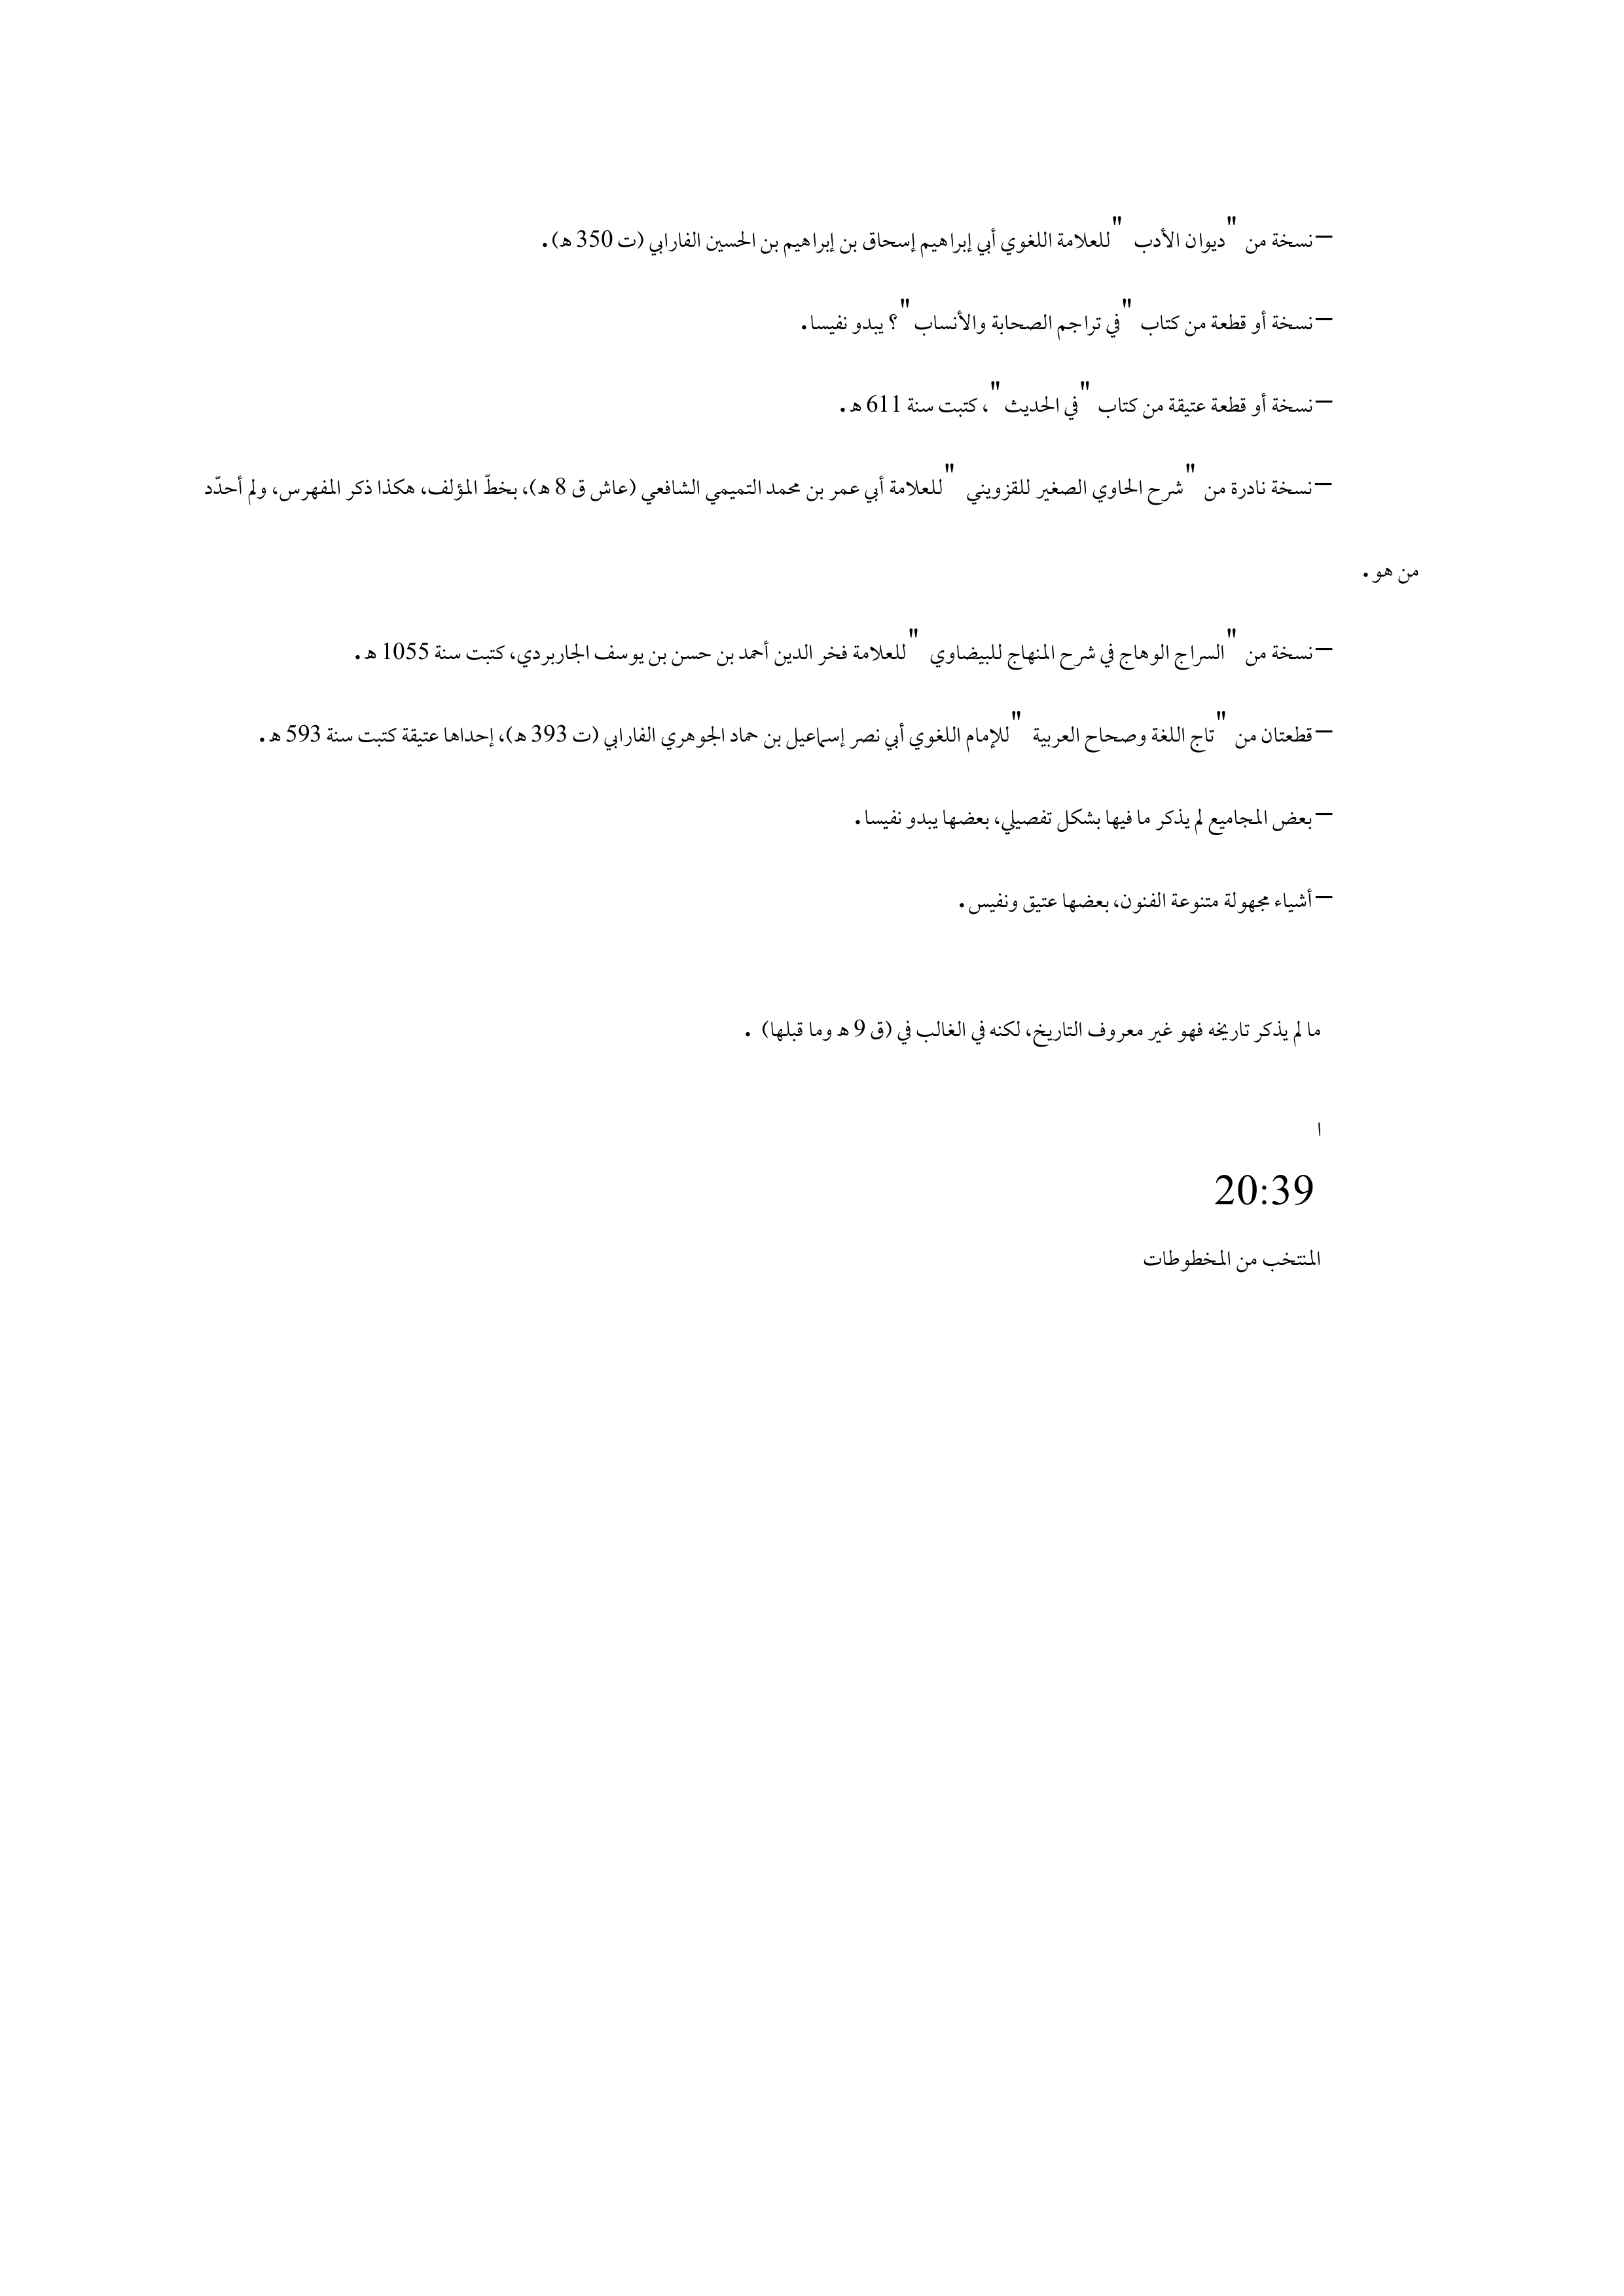 –نسخة من "ديوان الأدب "للعلامة اللغوي أبي إبراهيم إسحاق بن إبراهيم بن الحسين الفارابي (ت 350 ه).
–نسخة أو قطعة من كتاب "في تراجم الصحابة والأنساب"؟ يبدو نفيسا.
–نسخة أو قطعة عتيقة من كتاب "في الحديث"، كتبت سنة 611 ه.
–نسخة نادرة من "شرح الحاوي الصغير للقزويني "للعلامة أبي عمر بن محمد التميمي الشافعي (عاش ق 8 ه)، بخطّ المؤلف، هكذا ذكر المفهرس، ولم أحدّد
من هو.
–نسخة من "السراج الوهاج في شرح المنهاج للبيضاوي "للعلامة فخر الدين أحمد بن حسن بن يوسف الجاربردي، كتبت سنة 1055 ه.
–قطعتان من "تاج اللغة وصحاح العربية "للإمام اللغوي أبي نصر إسماعيل بن حماد الجوهري الفارابي (ت 393 ه)، إحداها عتيقة كتبت سنة 593 ه.
–بعض المجاميع لم يذكر ما فيها بشكل تفصيلي، بعضها يبدو نفيسا.
–أشياء مجهولة متنوعة الفنون، بعضها عتيق ونفيس.
ما لم يذكر تاريخه فهو غير معروف التاريخ، لكنه في الغالب في (ق 9 ه وما قبلها) .
ا
20:39
المنتخب من المخطوطات